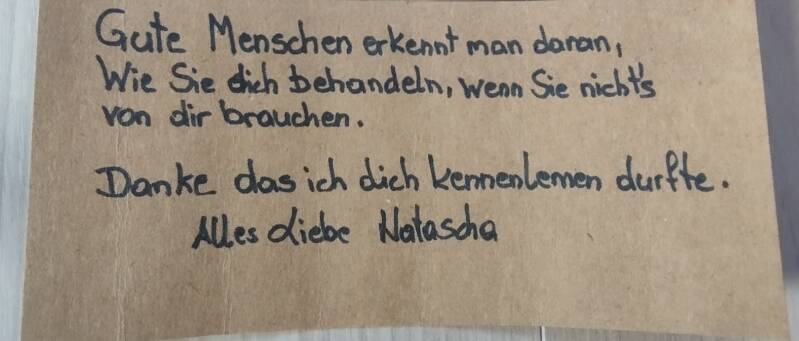 Gute Menschen erkennt man daran,
Wie Sie dich behandeln, wenn Sie nicht's
von dir brauchen.
Danke das ich dich kennenlernen durfte.
Alles Liebe Natascha